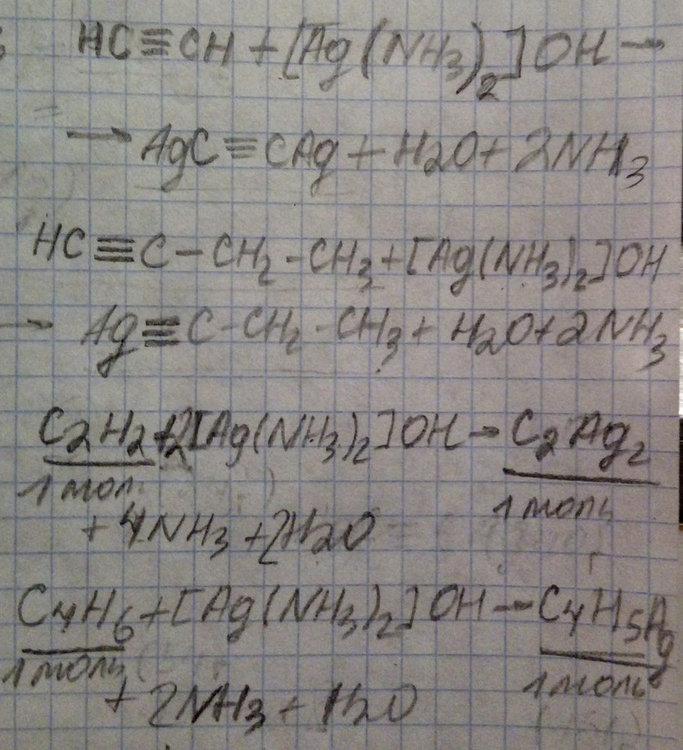 HC≡CH + [Ag(NH₃)₂]OH —
→ AgC≡CAg + H₂O + 2NH₃
HC≡C-CH₂-CH₃ + [Ag(NH₃)₂]OH
→ Ag≡C-CH₂-CH₃ + H₂O + 2NH₃
C₂H₂ + 2[Ag(NH₃)₂]OH → C₂Ag₂
1 моль 1 моль
+ 4NH₃ + 2H₂O
C₄H₆ + [Ag(NH₃)₂]OH → C₄H₅Ag
1 моль 1 моль
+ 2NH₃ + H₂O